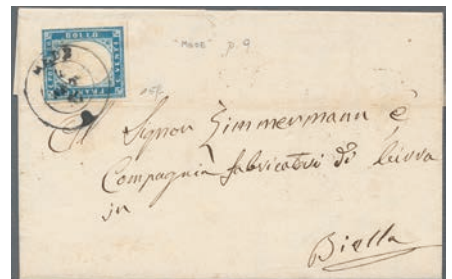 BOLLO
"MEDE" p. 9
MEDE
Al Signor Zimmermann è
Compagnia fabricatori di birra
in
Biella